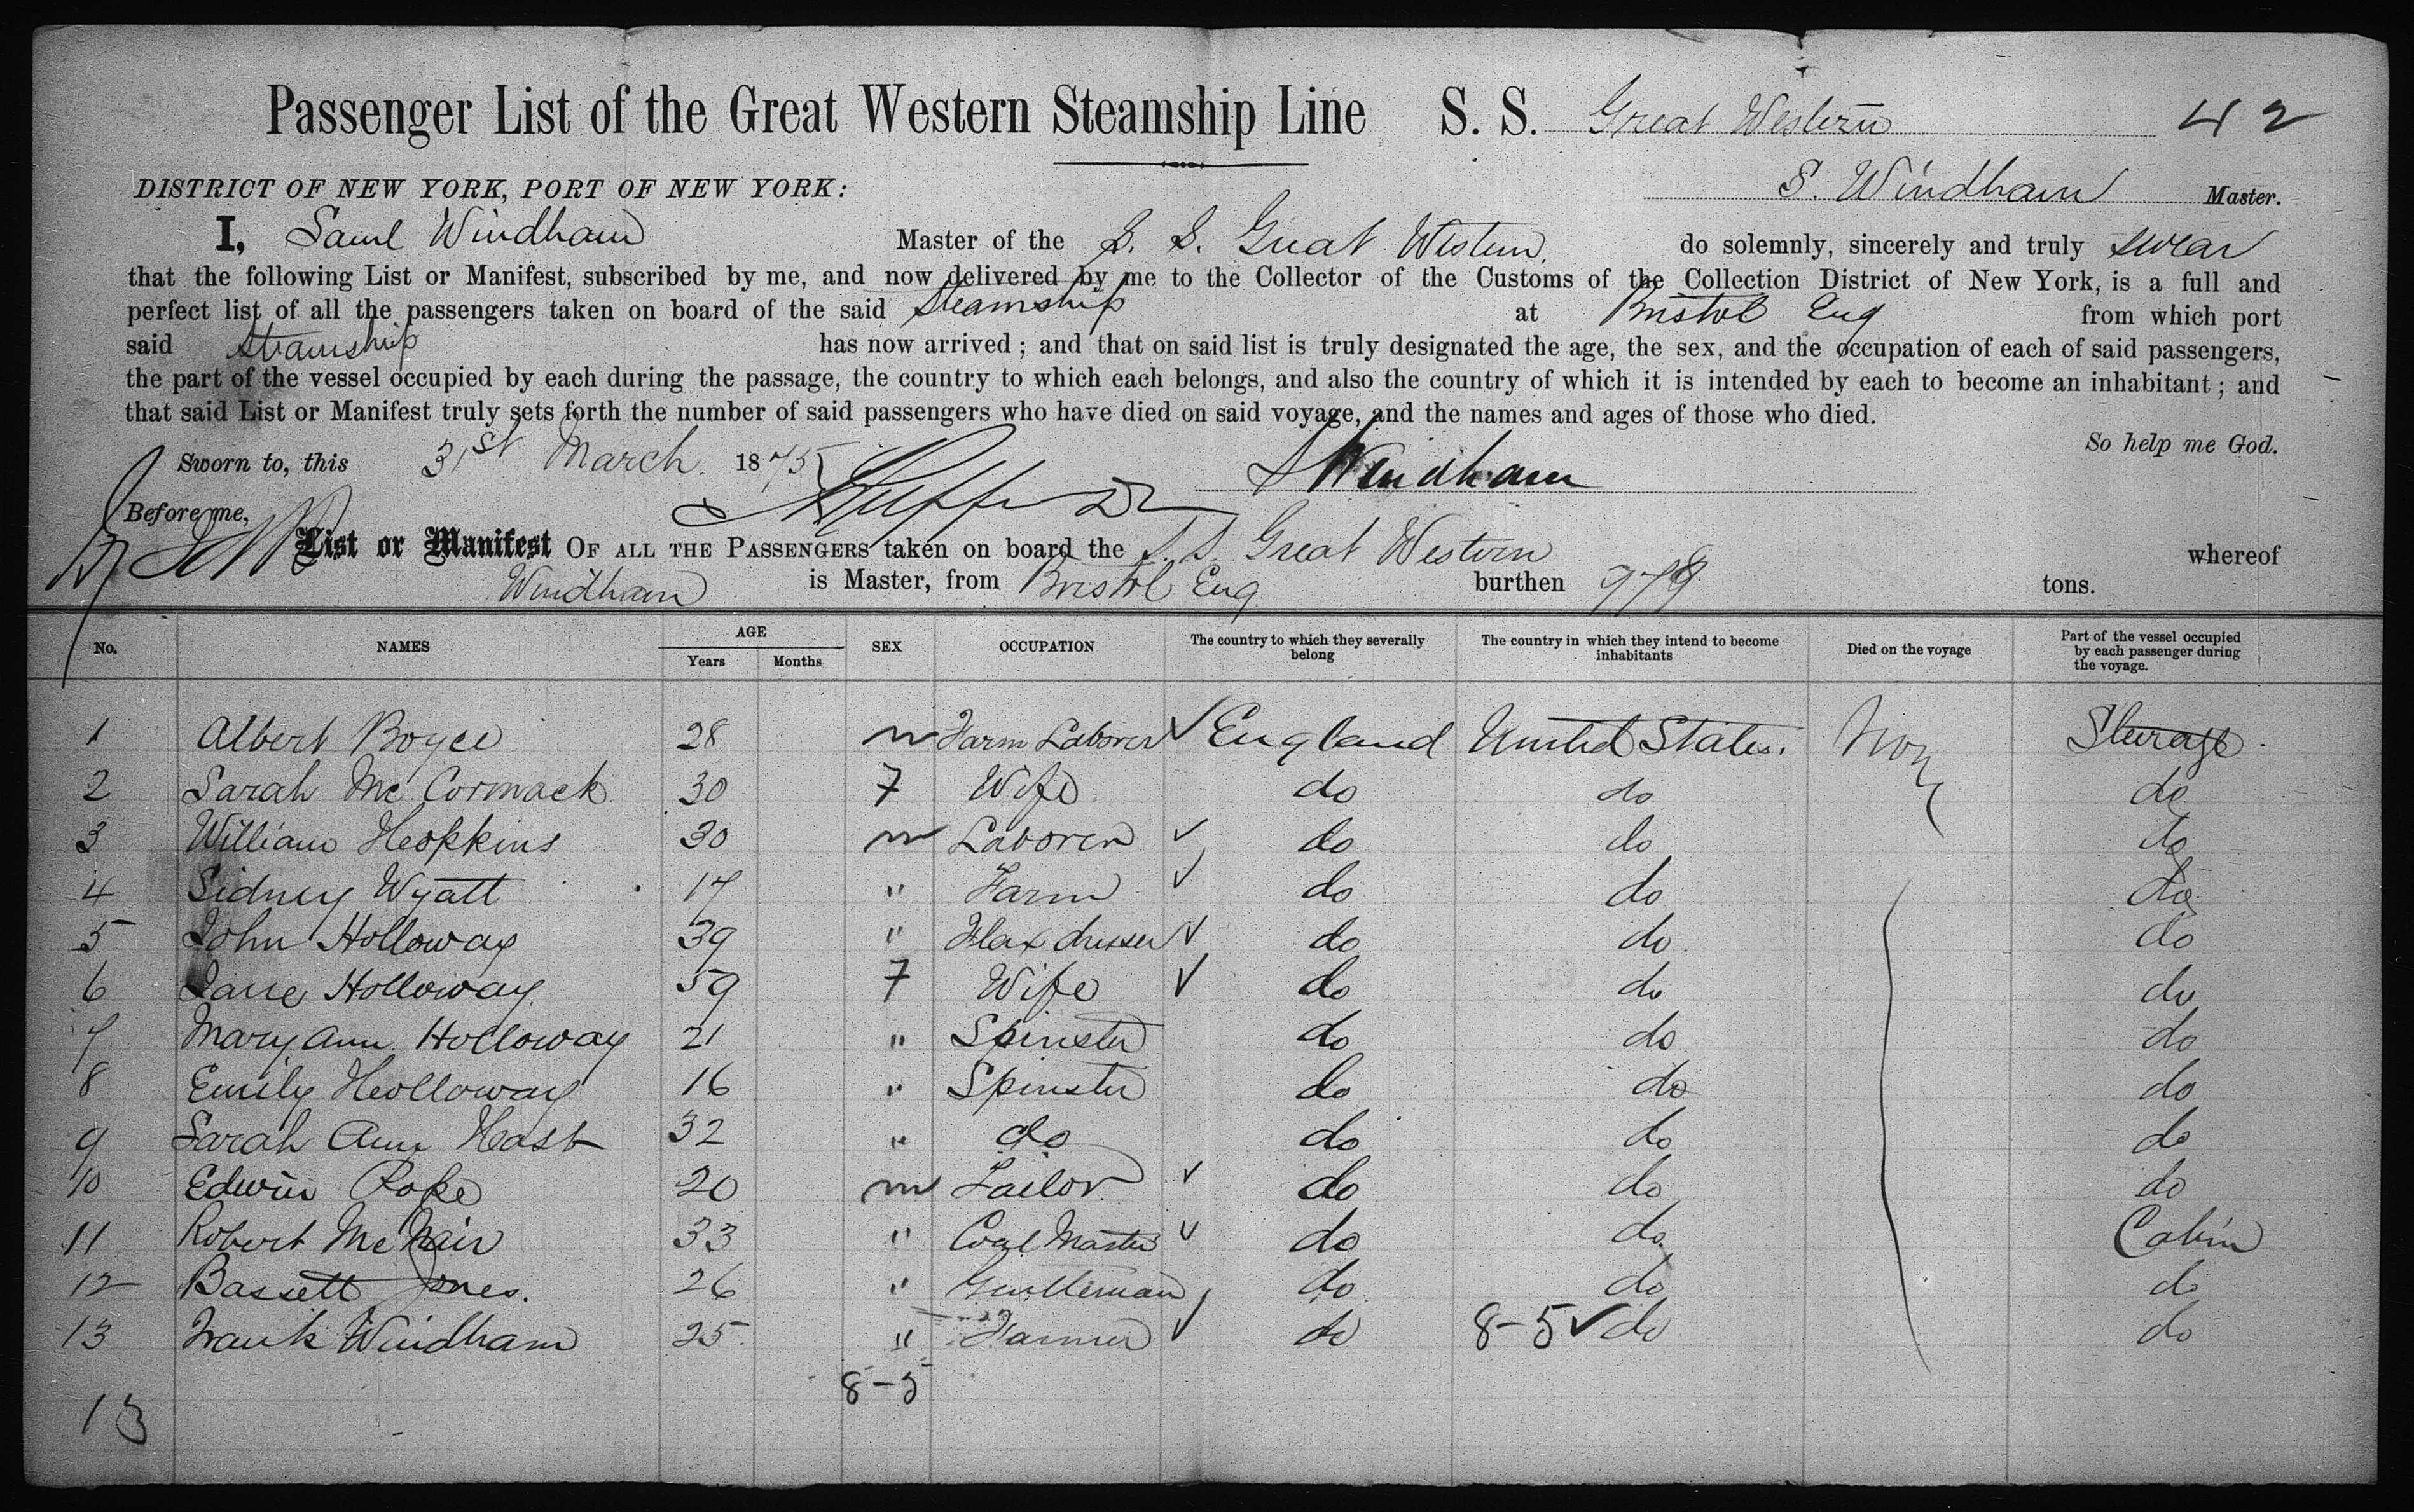 Passenger List of the Great Western Steamship Line S. S. Great Western 42
DISTRICT OF NEW YORK, PORT OF NEW YORK: S. Windham Master.
I, Saml Windham Master of the S. S. Great Western. do solemnly, sincerely and truly swear
that the following List or Manifest, subscribed by me, and now delivered by me to the Collector of the Customs of the Collection District of New York, is a full and
perfect list of all the passengers taken on board of the said Steamship at Bristol Eng from which port
said Steamship has now arrived; and that on said list is truly designated the age, the sex, and the occupation of each of said passengers,
the part of the vessel occupied by each during the passage, the country to which each belongs, and also the country of which it is intended by each to become an inhabitant; and
that said List or Manifest truly sets forth the number of said passengers who have died on said voyage, and the names and ages of those who died.
So help me God.
Sworn to, this 31st March 1875 S Windham
Before me,
List or Manifest OF ALL THE PASSENGERS taken on board the S. S. Great Western whereof
Windham is Master, from Bristol Eng burthen 978 tons.
No. NAMES AGE Years Months SEX OCCUPATION The country to which they severally belong The country in which they intend to become inhabitants Died on the voyage Part of the vessel occupied by each passenger during the voyage.
1 Albert Boyce 28 m Farm Laborer ✓ England United States. Non Steerage.
2 Sarah Mc Cormack 30 F Wife do do do
3 William Hopkins 30 m Laborer ✓ do do do
4 Sidney Wyatt 17 " Farm ✓ do do do
5 John Holloway 39 " Flax dresser ✓ do do do
6 Jane Holloway 59 F Wife ✓ do do do
7 Mary Ann Holloway 21 " Spinster do do do
8 Emily Holloway 16 " Spinster do do do
9 Sarah Ann Hast 32 " do do do do
10 Edwin Pope 20 m Tailor ✓ do do do
11 Robert Mc Nair 33 " Coal Master ✓ do do Cabin
12 Bassett Jones. 26 " Gentleman do do do
13 Frank Windham 25 " Farmer ✓ do 8-5 ✓ do do
8-5
13